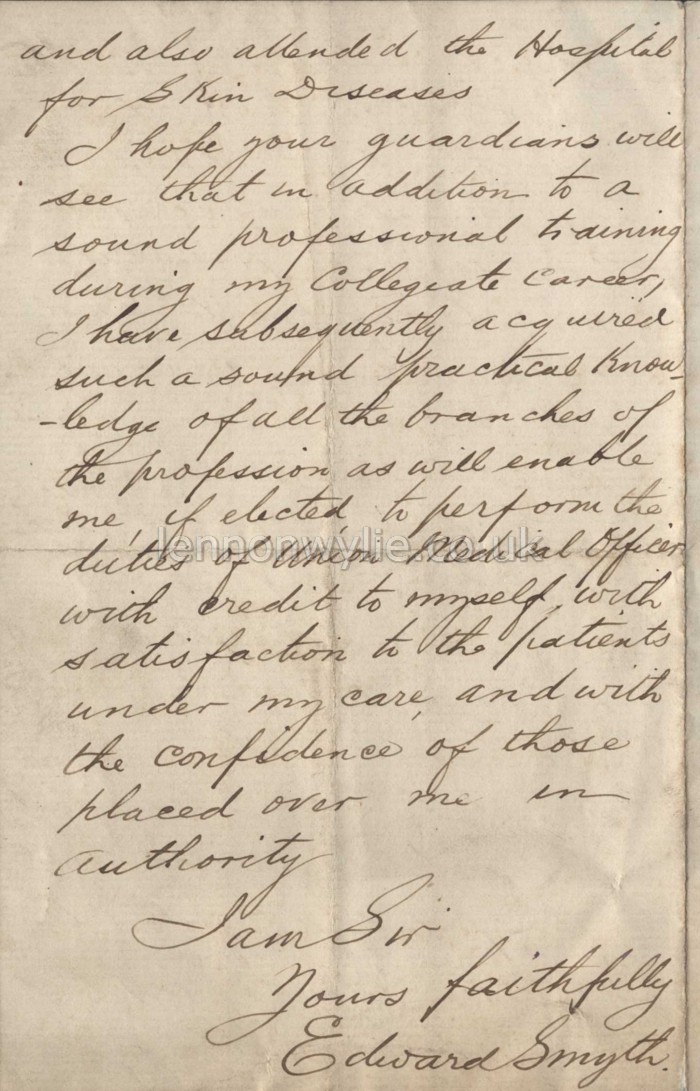 and also attended the Hospital
for Skin Diseases
I hope your guardians will
see that in addition to a
sound professional training
during my Collegiate Career,
I have subsequently acquired
such a sound practical Know-
-ledge of all the branches of
the profession as will enable
me, if elected, to perform the
duties of Union Medical Officer
lennonwylie.co.uk
with credit to myself, with
satisfaction to the patients
under my care, and with
the confidence of those
placed over me in
authority
I am Sir
Yours faithfully
Edward Smyth.